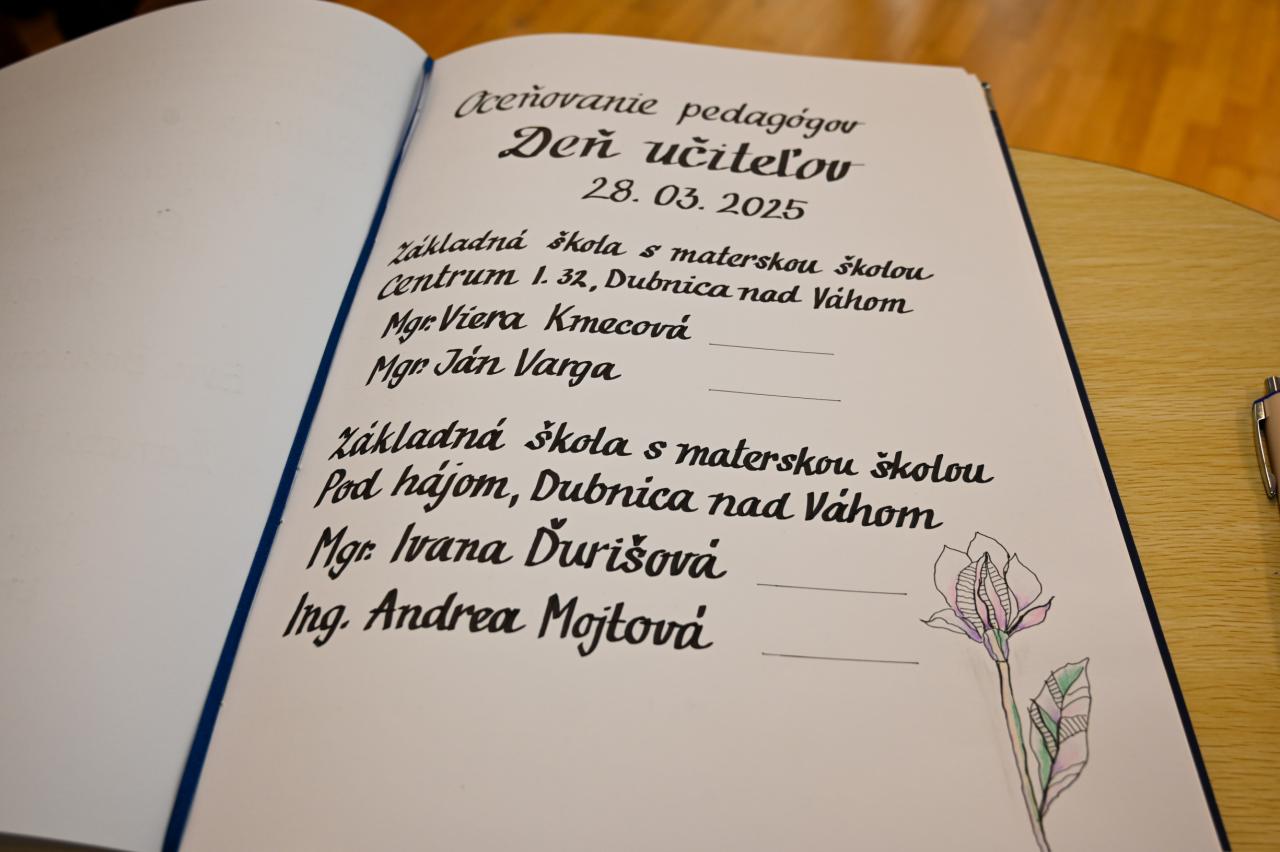 Oceňovanie pedagógov
Deň učiteľov
28. 03. 2025
Základná škola s materskou školou
Centrum I. 32, Dubnica nad Váhom
Mgr. Viera Kmecová
Mgr. Ján Varga
Základná škola s materskou školou
Pod hájom, Dubnica nad Váhom
Mgr. Ivana Ďurišová
Ing. Andrea Mojtová